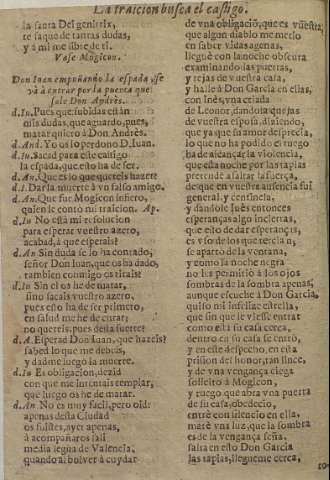 La traicion busca el castigo.
la santa Del genitrix,
te saque de tantas dudas,
y a mi me libre de ti.
Vase Mogicon.
Don Iuan empuñando la espada, se
và à entrar por la puerta que
sale Don Andrès.
d.Iu. Pues que subidas están
mis dudas, que aguardo, pues,
matar quiero à Don Andrès.
d.And. Yo os lo perdono D. Iuan.
d.Iu. Sacad para este castigo
la espada, que esto ha de ser.
d.An. Que es lo que quereis hazer?
d.I. Darla muerte à vn falso amigo.
d.An. Que fue Mogicon infiero,
quien le contò mi traicion. Ap.
d.Iu. No està mi resolucion
para esperar vuestro azero,
acabad, à que esperais?
d.An. Sin duda se lo ha contado,
señor Don Iuan, que os ha dado,
tambien conmigo os tirais?
d.Iu. Sin el os he de matar,
sino sacais vuestro azero,
pues esto ha de ser primero,
en salud me he de curar;
no quereis, pues desta suerte?
d.A. Esperad Don Iuan, que hazeis?
sabed lo que me debeis,
y dadme luego la muerte.
d.Iu. Es obligacion, dezid
con que me intentais templar,
que luego os he de matar.
d.An. No es muy facil, pero oid:
apenas desta Ciudad
os fuistes, ayer apenas,
à acompañaros salì
media legua de Valencia,
quando al bolver à cuydar
de vna obligaciõ, que es vuestra,
que algun diablo me metiò
en saber vidas agenas,
lleguè con la noche obscura
examinando las puertas,
y rejas de vuestra casa,
y hallè à Don Garcia en ellas,
con Inès, vna criada
de Leonor, dandola quejas
de vuestra esposa, diziendo,
que ya que su amor desprecia,
lo que no ha podido el ruego
ha de alcançar la violencia,
que esta noche por las tapias
pretende assaltar la fuerça,
de que en vuestra ausencia fui
general, y centinela,
y dandole Inès entonces
esperanças algo inciertas,
que esto de dar esperanças,
es vso de los que tercian,
se apartò de la ventana,
y como la noche negra
no les permitiò à los ojos
sombras de la sombra apenas,
aunque escuchè à Don Garcia,
quiso mi infelize estrella,
que sin que le viesse entrar
como està su casa cerca,
dentro en su casa se entrò,
y en este despecho, en esta
prision del honor, tan since,
y de vna vengança ciega
solicito à Mogicon,
y ruego que abra vna puerta
de su casa, obedeciò,
entrè con silencio en ella,
matè vna luz, que la sombra
es de la vengança seña,
salta en esto Don Garcia
las tapias, lleguème cerca,